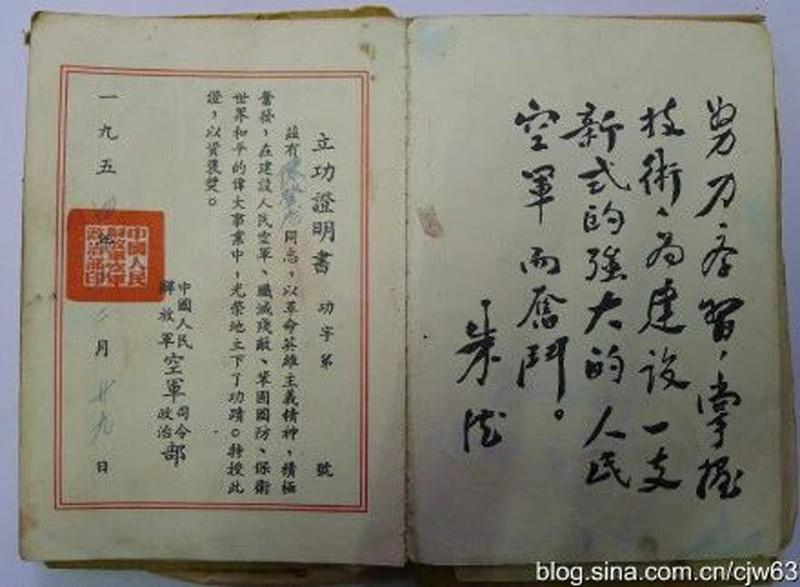 努力学習，掌握
技術，為建設一支
新式的強大的人民
空軍而奮鬥。
朱德
立功證明書 功字第 號
茲有 同志，以革命英雄主義精神，積極
奮發，在建設人民空軍、殲滅殘敵、鞏固國防、保衛
世界和平的偉大事業中，光榮地立下了功蹟。特授此
證，以資褒奬。
中國人民
解放軍
空軍
司令
政治
部
一九五四年 月廿九日
中國人民
解放軍空軍
政治部印
blog.sina.com.cn/cjw63